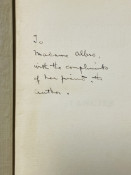 To
Madame Albar,
with the compliments
of her friend, the
author.